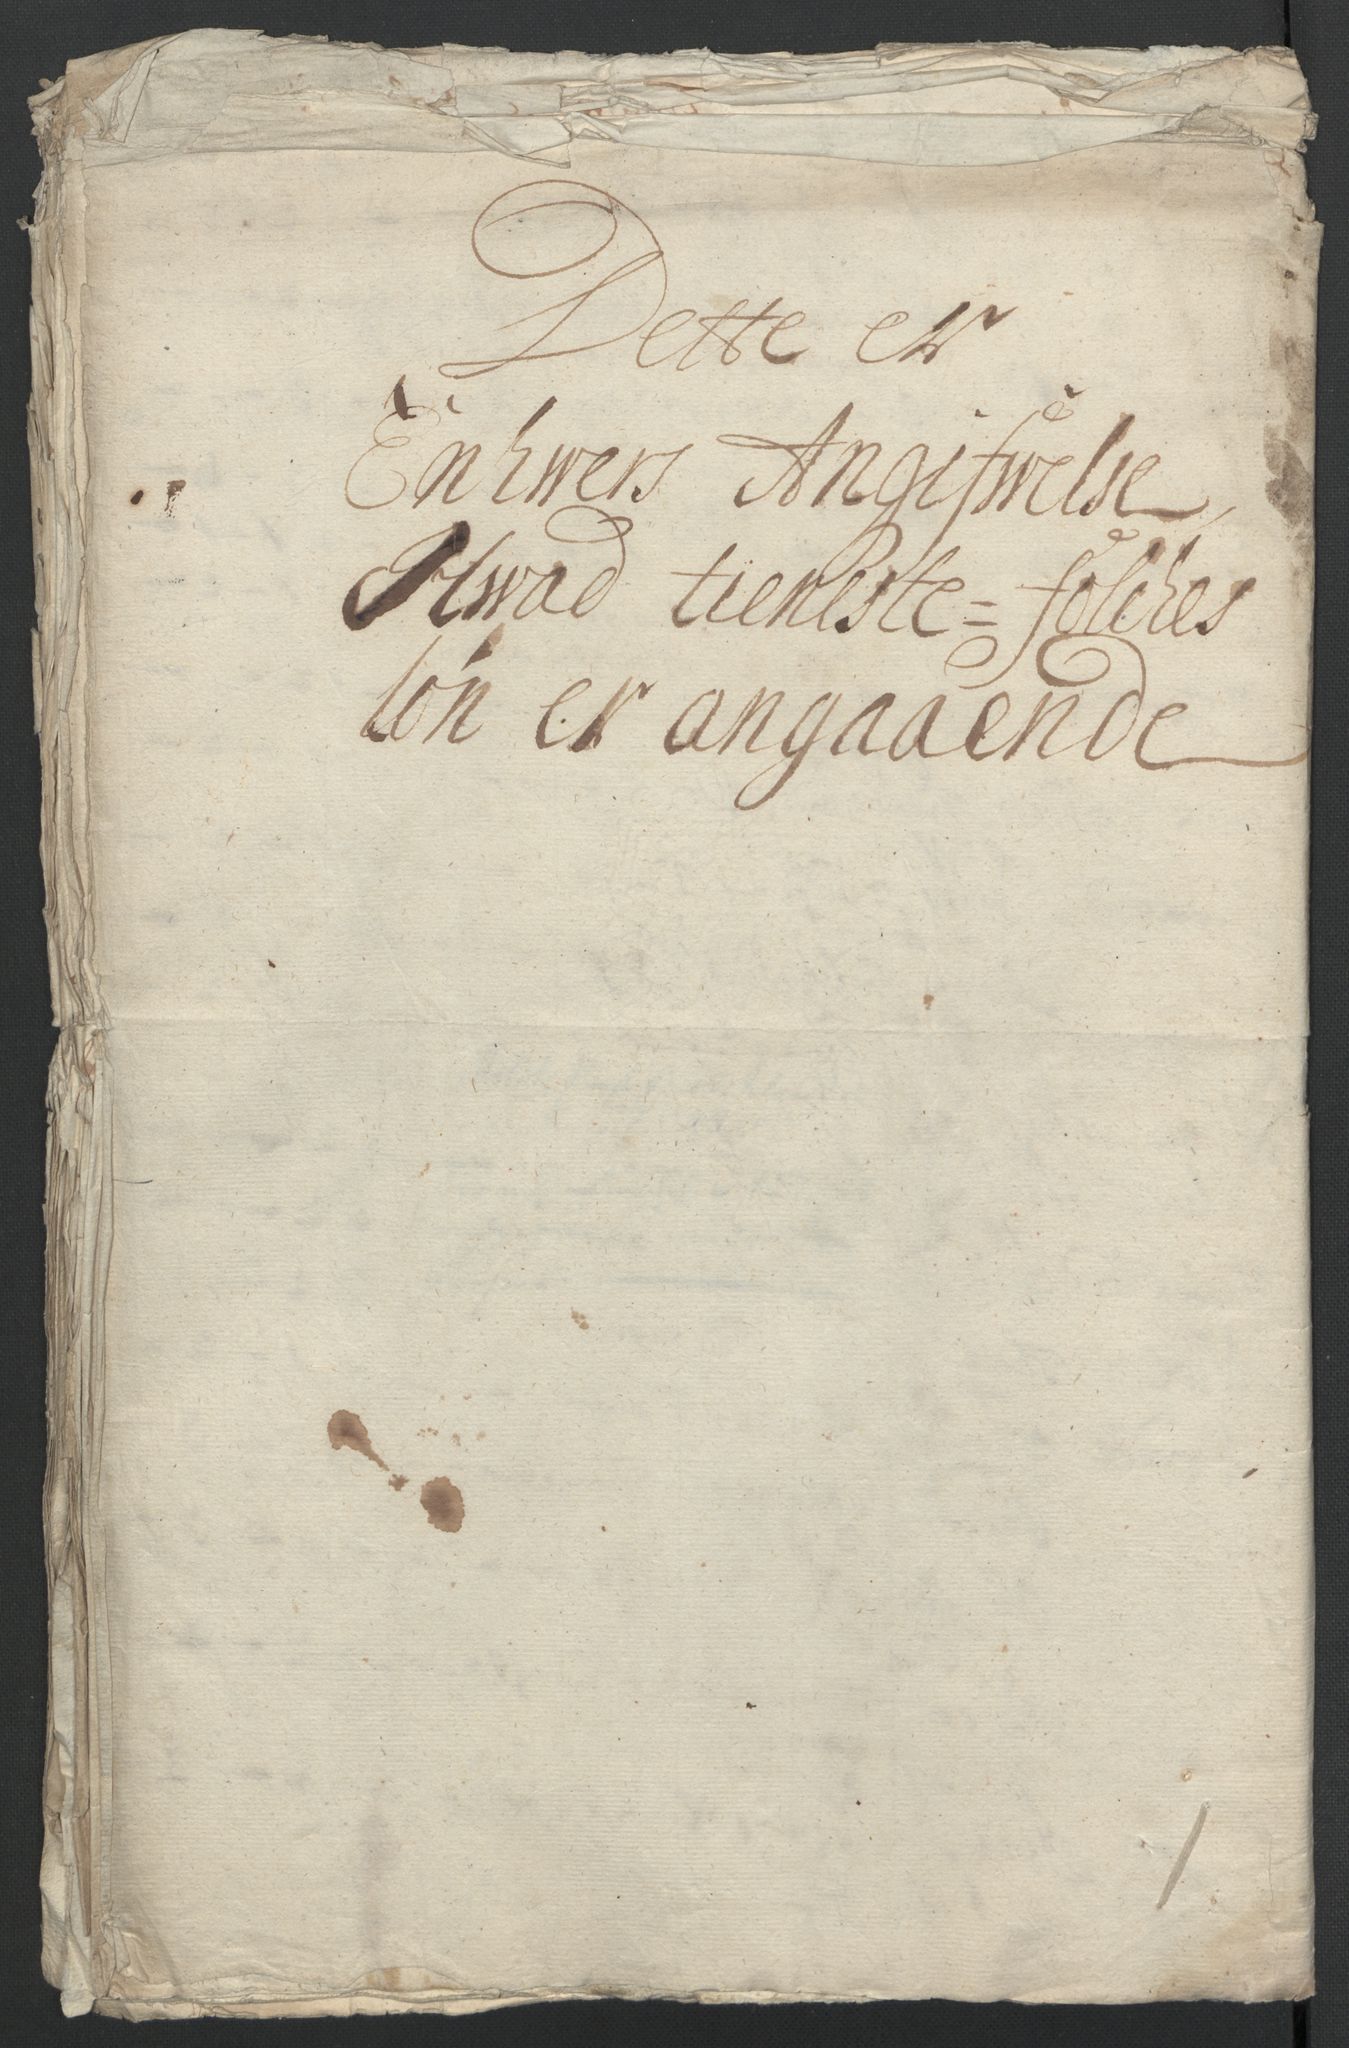 Dette er
Enhwers Angifwelse,
Hwad tieneste=folches
lön er angaaende
1